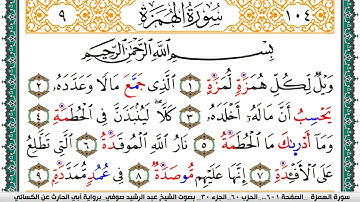 ٩ سُورَةُ الهُمَزَةِ ١٠٤
بِسْمِ اللَّهِ الرَّحْمَٰنِ الرَّحِيمِ
وَيْلٌ لِّكُلِّ هُمَزَةٍ لُّمَزَةٍ ١ الَّذِي جَمَّعَ مَالًا وَعَدَّدَهُ ٢
يَحْسِبُ أَنَّ مَالَهُ أَخْلَدَهُ ٣ كَلَّا لَيُنبَذَنَّ فِي الْحُطَمَةِ ٤
وَمَا أَدْرَىٰكَ مَا الْحُطَمَةُ ٥ نَارُ اللَّهِ الْمُوقَدَةُ ٦ الَّتِي تَطَّلِعُ
عَلَى الْأَفْئِدَةِ ٧ إِنَّهَا عَلَيْهِم مُّوصَدَةٌ ٨ فِي عُمُدٍ مُّمَدَّدَةٍ ٩
سورة الهمزة _ الصفحة ٦٠١ _ الحزب ٦٠ _ الجزء ٣٠ _ بصوت الشيخ عبد الرشيد صوفي _ برواية أبي الحارث عن الكسائي